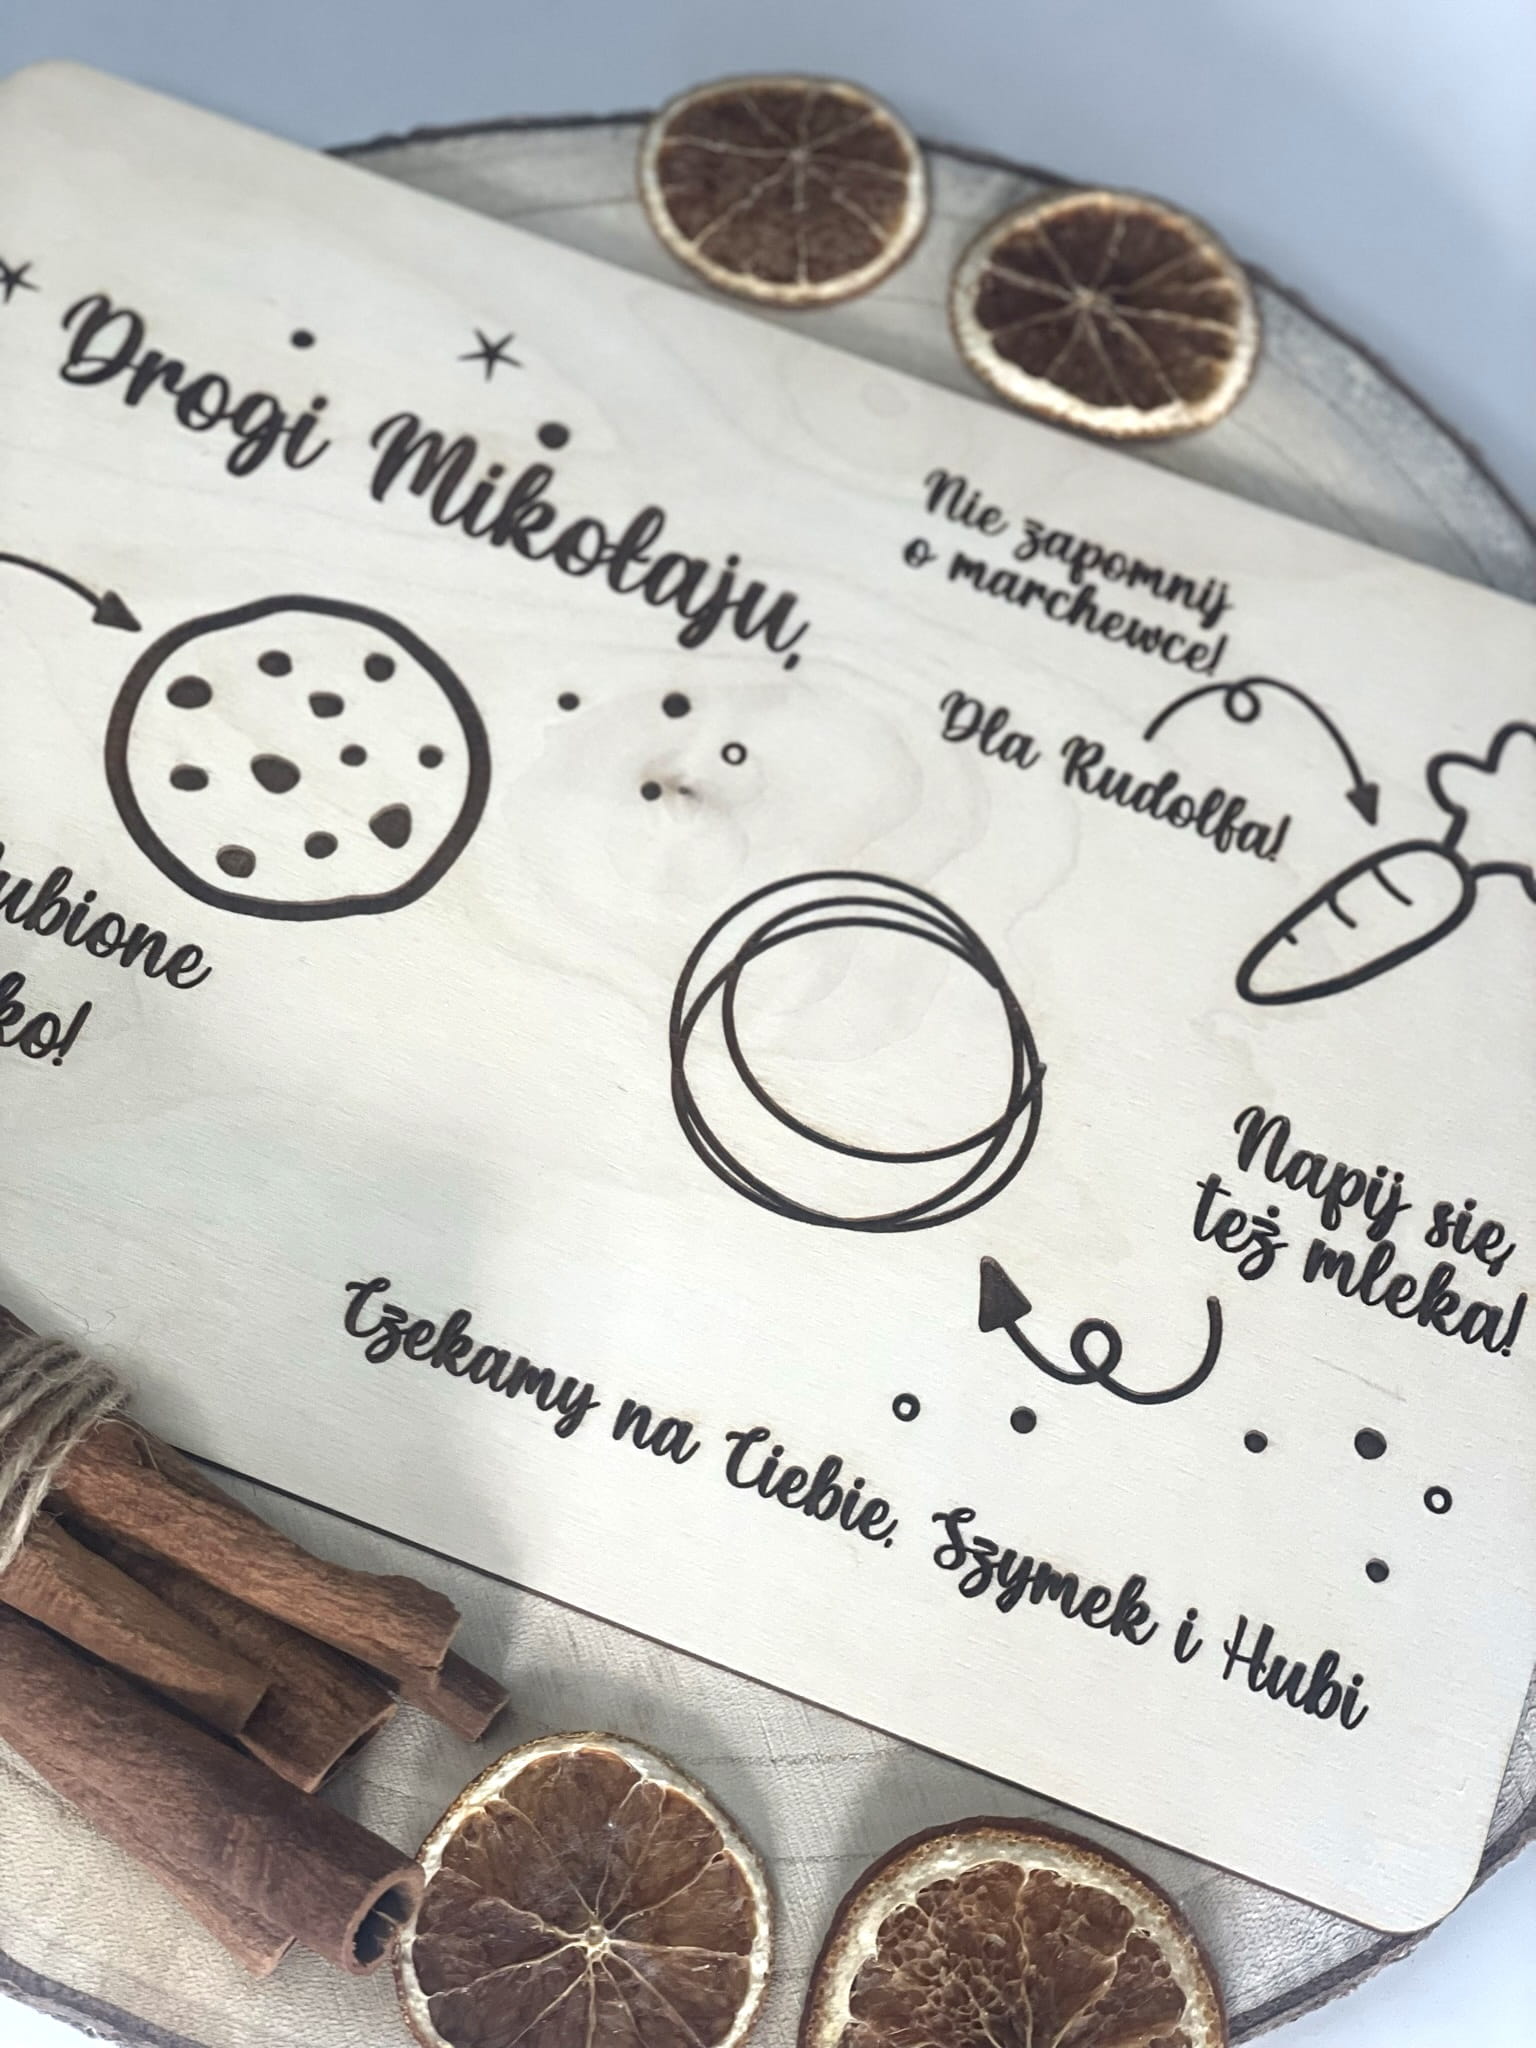 Drogi Mikołaju,
Nie zapomnij
o marchewce!
Dla Rudolfa!
Napij się
też mleka!
Czekamy na Ciebie. Szymek i Hubi